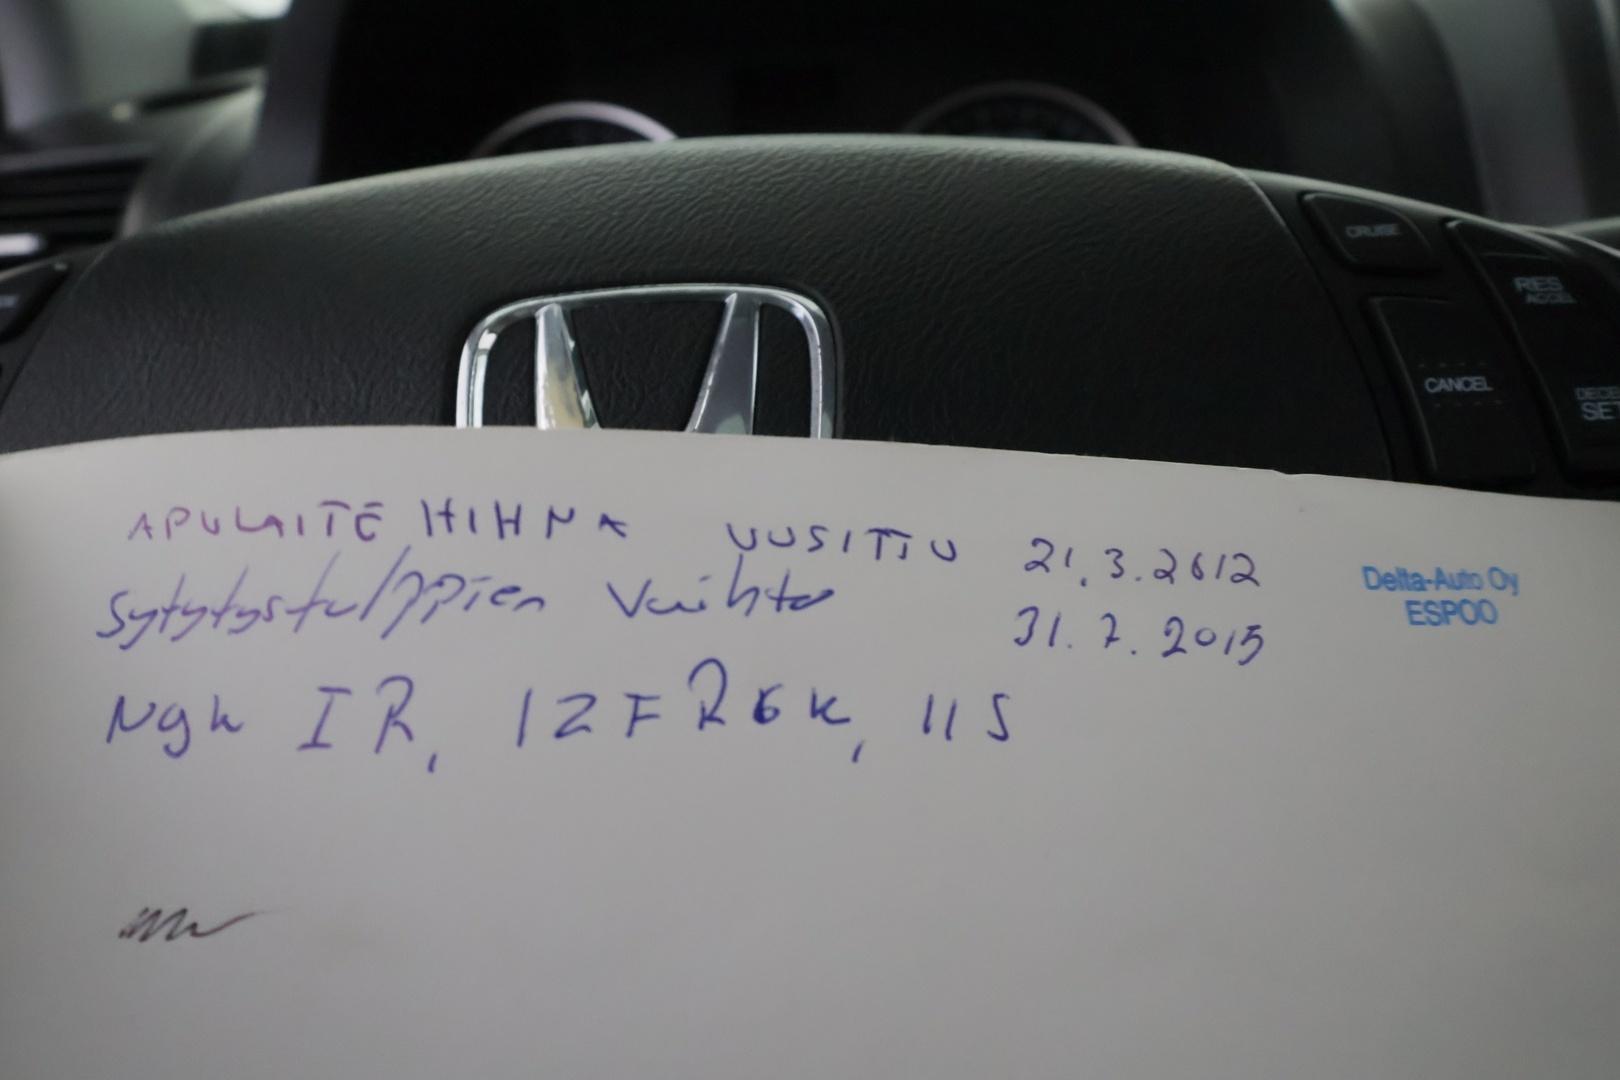 CRUISE
RES
ACCEL
CANCEL
SET
APULAITE HIHNA UUSITTU 21.3.2012
Delta-Auto Oy
ESPOO
Sytytystulppien Vaihto 31.7.2015
Ngk IR, IZFR6K, 11S